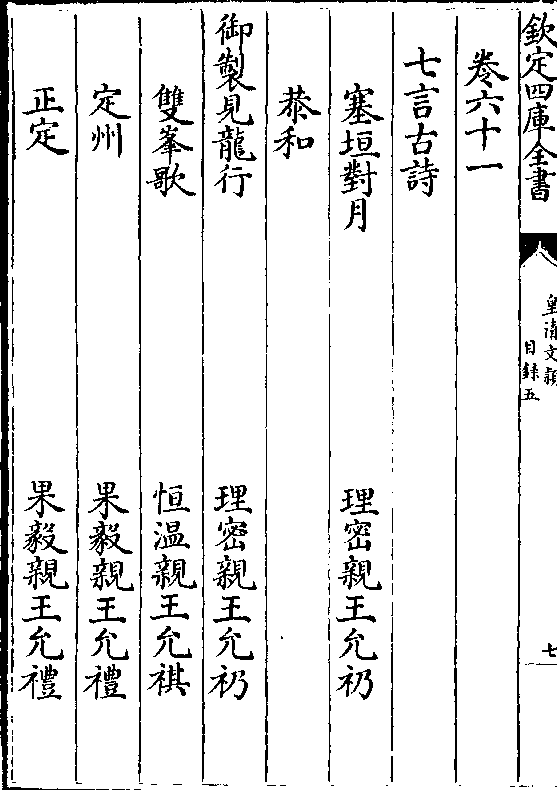 欽定四庫全書
皇清文穎
目録五
七
卷六十一
七言古詩
塞垣對月 理密親王允礽
恭和
御製見龍行 理密親王允礽
雙峯歌 恒温親王允祺
定州 果毅親王允禮
正定 果毅親王允禮